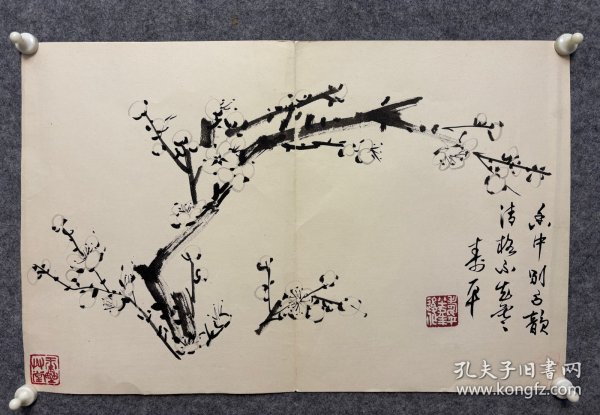 香中别有韵
清极不知寒
寿平
孔夫子旧书网
www.kongfz.com